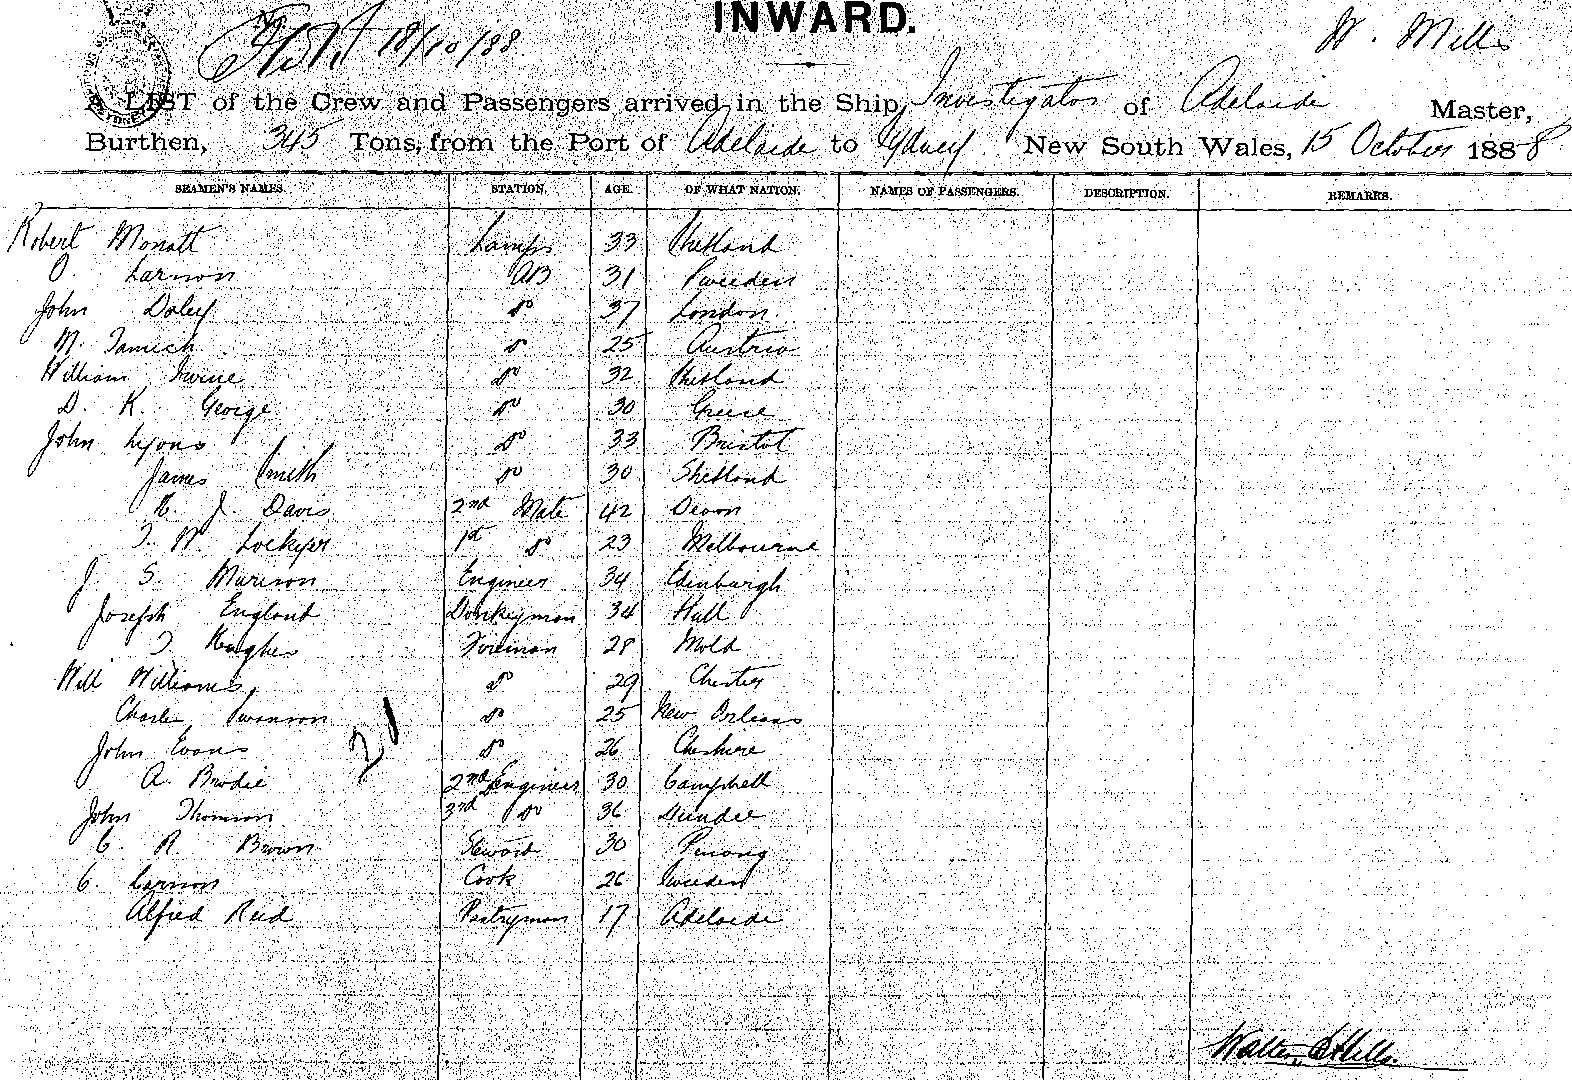 INWARD.
18/10/88
W. Mills
A LIST of the Crew and Passengers arrived in the Ship, Investigator of Adelaide Master,
Burthen, 345 Tons, from the Port of Adelaide to Sydney New South Wales, 15 October 1888
SEAMEN'S NAMES. STATION. AGE. OF WHAT NATION. NAMES OF PASSENGERS. DESCRIPTION. REMARKS.
Robert Monatt Lamps 33 Shetland
O. Larsson AB 31 Sweden
John Daley do 37 London
M. do 25 Austria
William Irvine do 32 Shetland
D. K. George do 30 Greece
John Lyons do 33 Bristol
James Smith do 30 Shetland
J. Davis 2nd Mate 42 Devon
W. Lockyer 1st do 23 Melbourne
J. S. Murison Engineer 34 Edinburgh
Joseph England Donkeyman 34 Hull
Hughes Fireman 28 Mold
Will Williams do 29 Chester
Charles Swanson do 25 New Orleans
John Evans do 26 Cheshire
21
A. Brodie 2nd Engineer 30 Campbell
John Thomson 3rd do 36 Dundee
C. R. Brown Steward 30 Penang
C. Carsson Cook 26 Sweden
Alfred Reid Pantryman 17 Adelaide
Walter Mills.